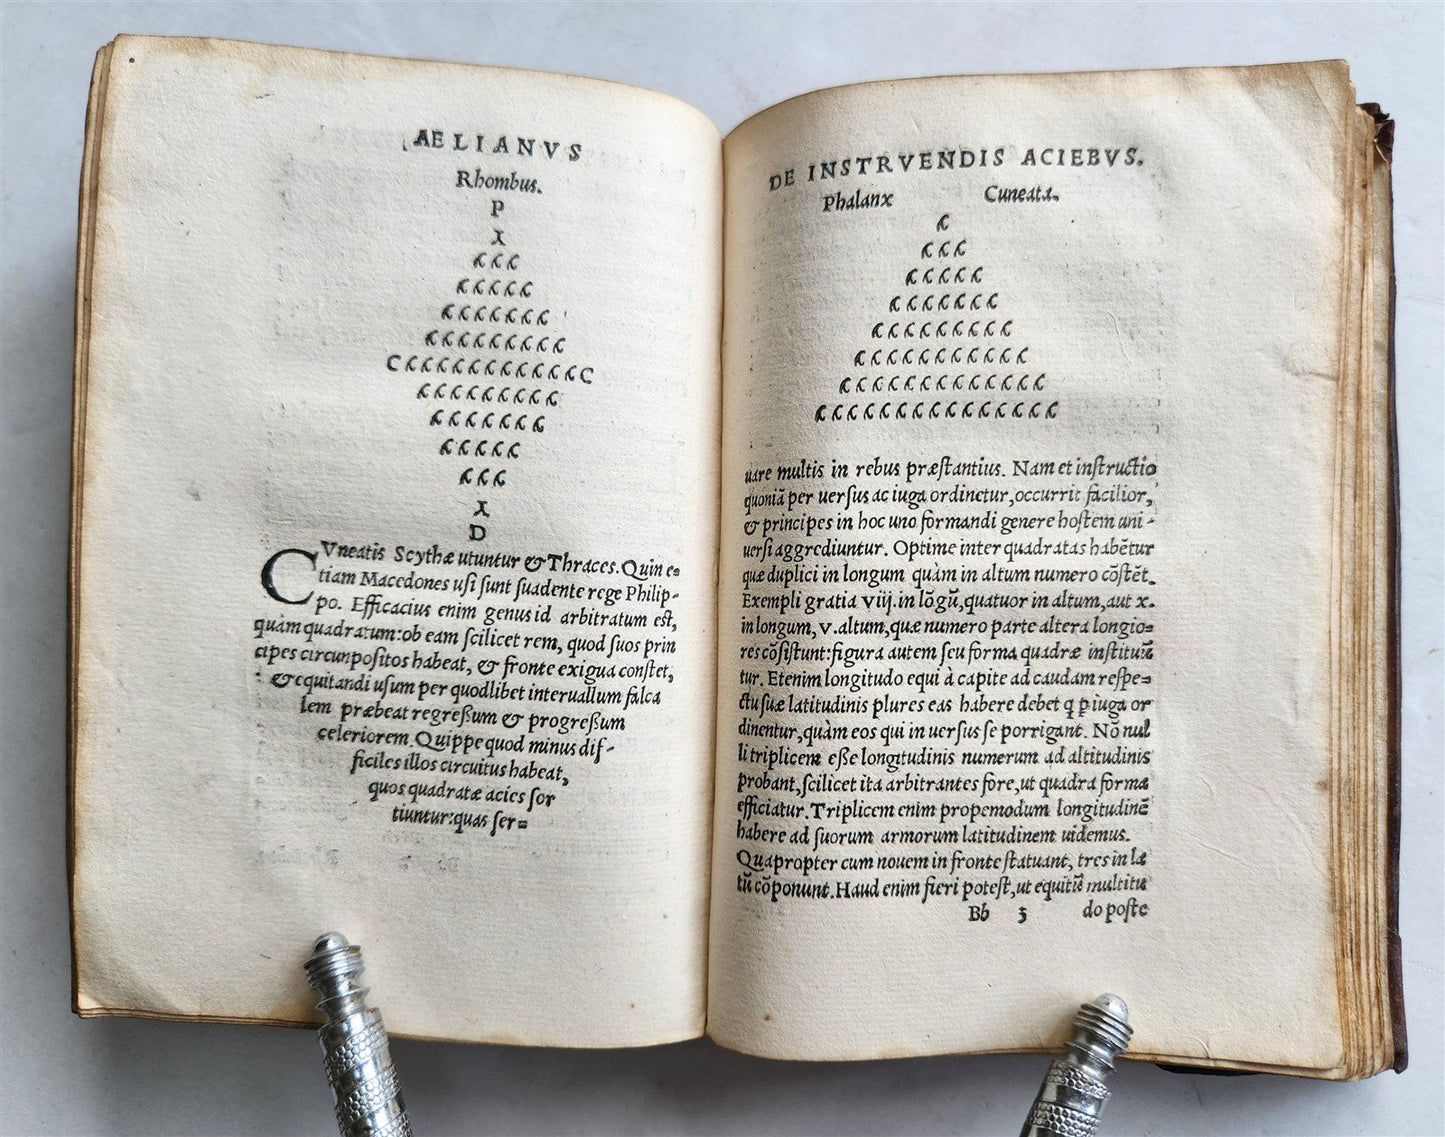 AELIANVS
Rhombus.
P
Cuneatis Scythæ utuntur & Thraces. Quin e=
tiam Macedones usi sunt suadente rege Philip-
po. Efficacius enim genus id arbitratum est,
quàm quadratum: ob eam scilicet rem, quod suos prin
cipes circunpositos habeat, & fronte exigua constet,
& equitandi usum per quodlibet interuallum falca
lem præbeat regreßum & progreßum
celeriorem. Quippe quod minus dif-
ficiles illos circuitus habeat,
quos quadratæ acies sor
tiuntur: quas ser=
DE INSTRVENDIS ACIEBVS.
Phalanx Cuneata.
uare multis in rebus præstantius. Nam et instructio
quoniã per uersus ac iuga ordinetur, occurrit facilior,
& principes in hoc uno formandi genere hostem uni-
uersi aggrediuntur. Optime inter quadratas habẽtur
quæ duplici in longum quàm in altum numero cõstẽt.
Exempli gratia viij. in lõgũ, quatuor in altum, aut x.
in longum, v. altum, quæ numero parte altera longio=
res cõsistunt: figura autem seu forma quadræ instituũ
tur. Etenim longitudo equi à capite ad caudam respe=
ctu suæ latitudinis plures eas habere debet q p iuga or
dinentur, quàm eos qui in uersus se porrigant. Nõ nul
li triplicem eße longitudinis numerum ad altitudinis
probant, scilicet ita arbitrantes fore, ut quadra forma
efficiatur. Triplicem enim propemodum longitudinẽ
habere ad suorum armorum latitudinem uidemus.
Quapropter cum nouem in fronte statuant, tres in la
tũ cõponunt. Haud enim fieri potest, ut equitũ multitu
Bb 3 do poste